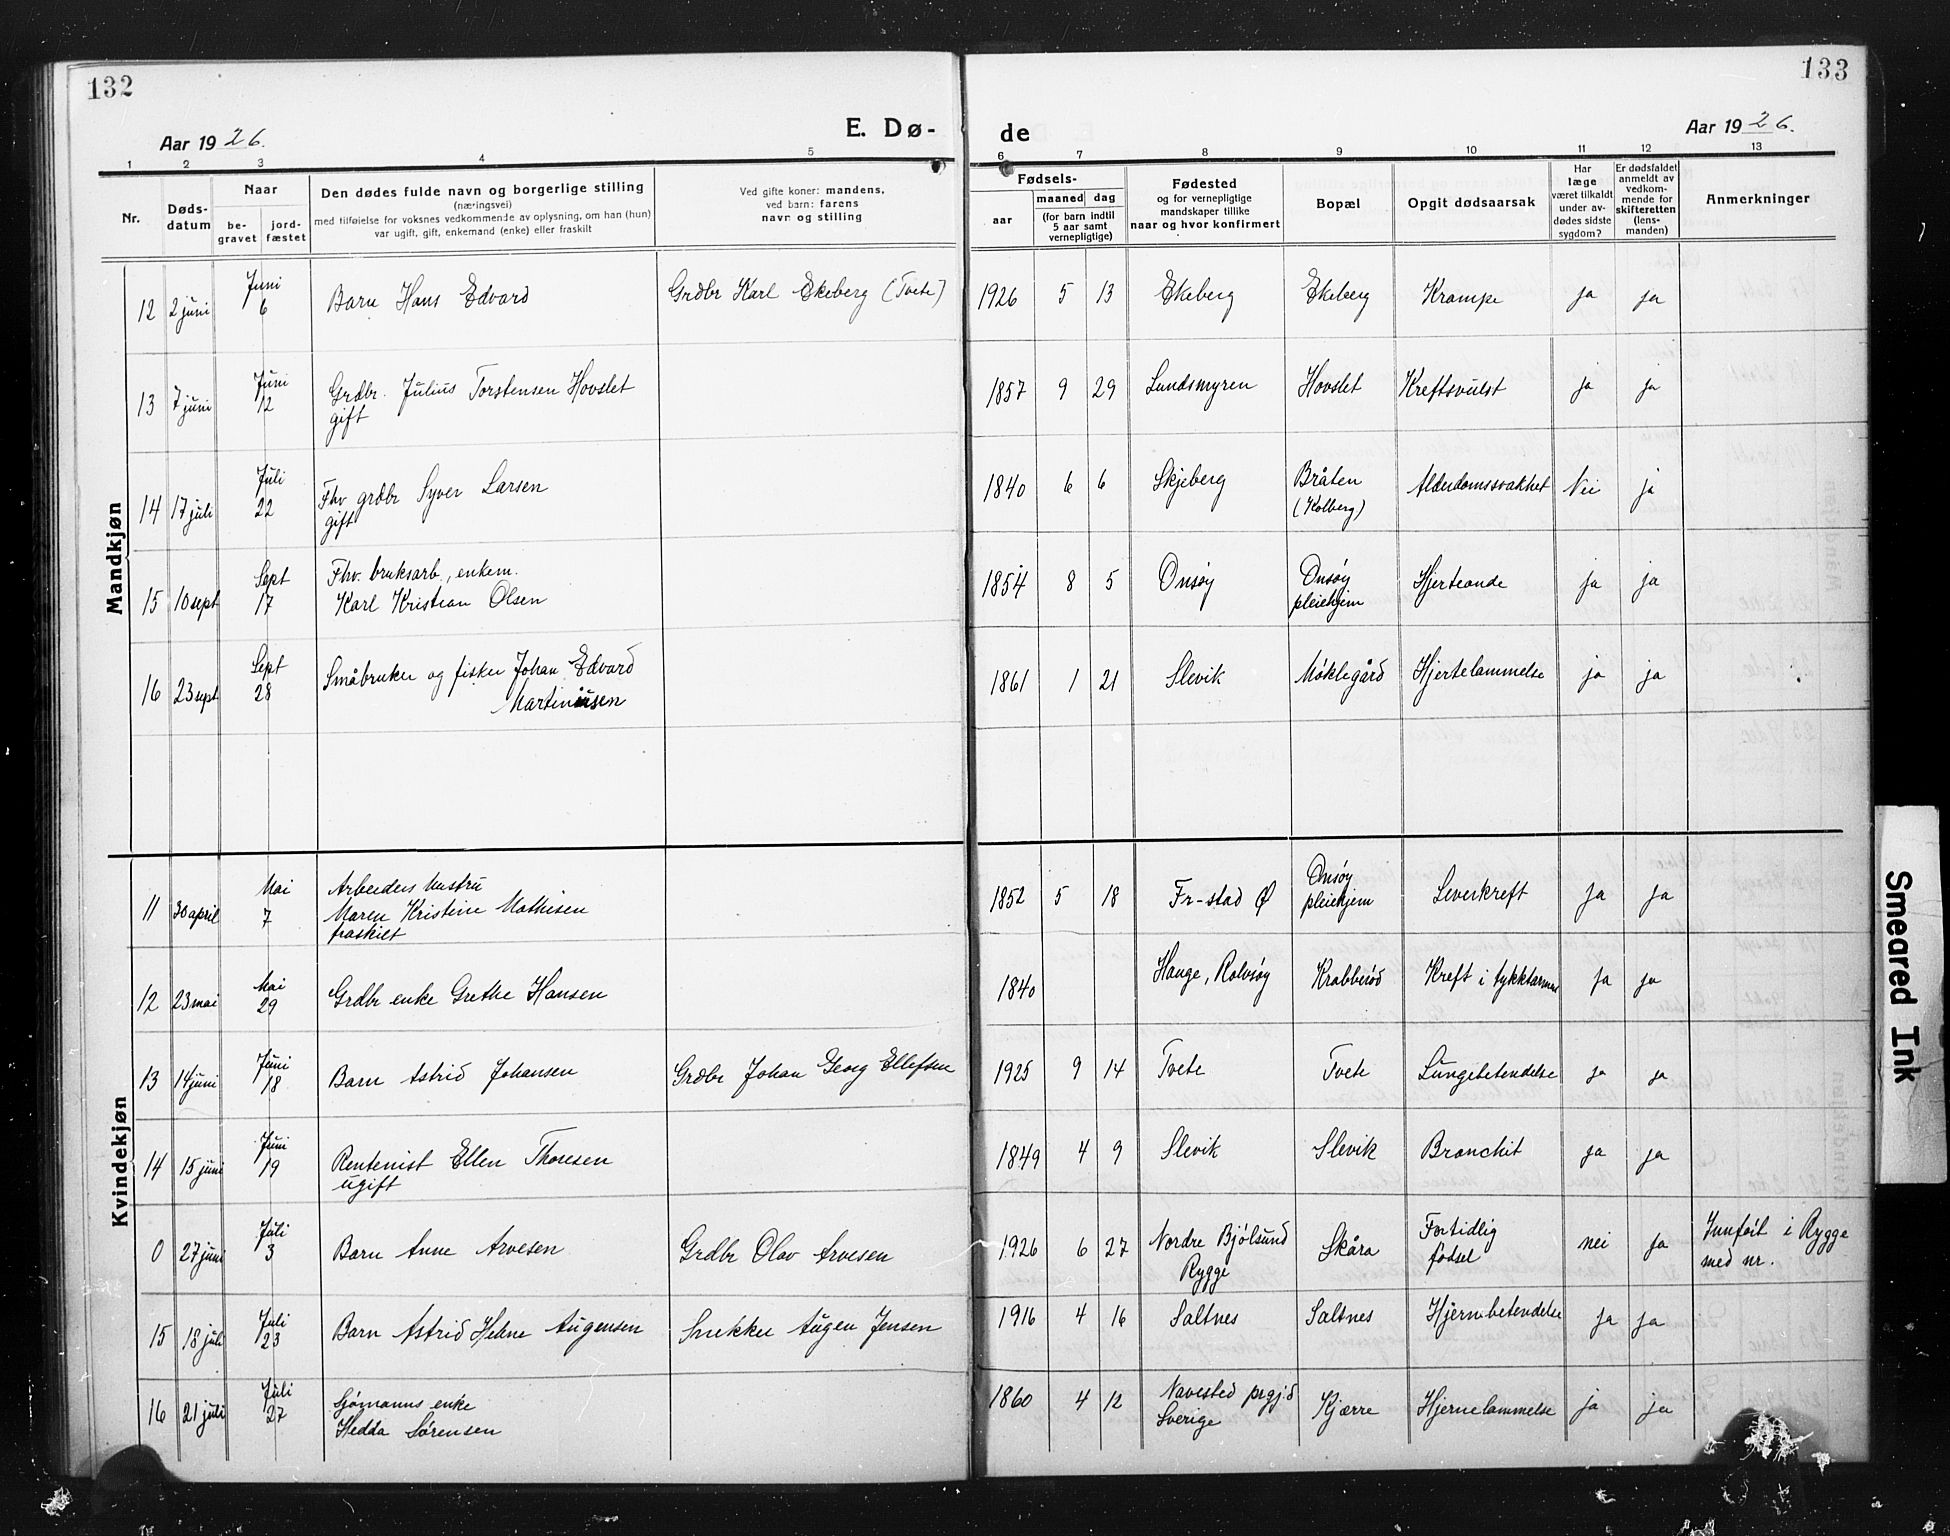 132
133
Aar 1926.
E. Dø-
de
Aar 1926.
1 2 3 4 5 6 7 8 9 10 11 12 13
Nr.
Døds-
datum
Naar
be-
gravet
jord-
fæstet
Den dødes fulde navn og borgerlige stilling
(næringsvei)
med tilføielse for voksnes vedkommende av oplysning, om han (hun)
var ugift, gift, enkemand (enke) eller fraskilt
Ved gifte koner: mandens,
ved barn: farens
navn og stilling
Fødsels-
aar
maaned dag
(for barn indtil
5 aar samt
vernepligtige)
Fødested
og for vernepligtige
mandskaper tillike
naar og hvor konfirmert
Bopæl
Opgit dødsaarsak
Har
læge
været tilkaldt
under av-
dødes sidste
sygdom?
Er dødsfaldet
anmeldt av
vedkom-
mende for
skifteretten
(lens-
manden)
Anmerkninger
Mandkjøn
12 2 juni Juni 6 Barn Hans Edvard Grdbr Karl Ekeberg (Tvete) 1926 5 13 Ekeberg Ekeberg Krampe ja ja
13 7 juni Juni 12 Grdbr. Julius Torstensen Hovslet
gift
1857 9 29 Lundsmyren Hovslet Kreftsvulst ja ja
14 17 juli Juli 22 Fhv grdbr Syver Larsen
gift
1840 6 6 Skjeberg Bråten
(Kolberg)
Alderdomssvakhet Nei ja
15 10 sept Sept 17 Fhv. bruksarb., enkem.
Karl Kristian Olsen
1854 8 5 Onsøy Onsøy
pleiehjem
Hjerteonde ja ja
16 23 sept Sept 28 Småbruker og fisker Johan Edvard
Martiniusen
1861 1 21 Slevik Møklegård Hjertelammelse ja ja
Kvindekjøn
11 30 april Mai 7 Arbeiders hustru
Maren Kristine Mathisen
fraskilt
1852 5 18 Fr-stad Ø Onsøy
pleiehjem
Leverkreft ja ja
12 23 mai Mai 29 Grdbr enke Grethe Hansen 1840 Hauge, Rolvsøy Krabberød Kreft i tykktarmen ja ja
13 14 juni Juni 18 Barn Astrid Johansen Grdbr Johan Georg Ellefsen 1925 9 14 Tvete Tvete Lungebetendelse ja ja
14 15 juni Juni 19 Rentenist Ellen Thoresen
ugift
1849 4 9 Slevik Slevik Bronchit ja ja
0 27 juni Juli 3 Barn Anne Arvesen Grdbr Olav Arvesen 1926 6 27 Nordre Bjølsund
Rygge
Skåra Fortidlig
fødsel
nei ja Innført i Rygge
med nr.
15 18 juli Juli 23 Barn Astrid Helene Augensen Snekker Augen Jensen 1916 4 16 Saltnes Saltnes Hjernebetendelse ja ja
16 21 juli Juli 27 Sjømanns enke
Hedda Sørensen
1860 4 12 Navestad prgjd
Sverige
Kjærre Hjernelammelse ja ja
Smeared Ink